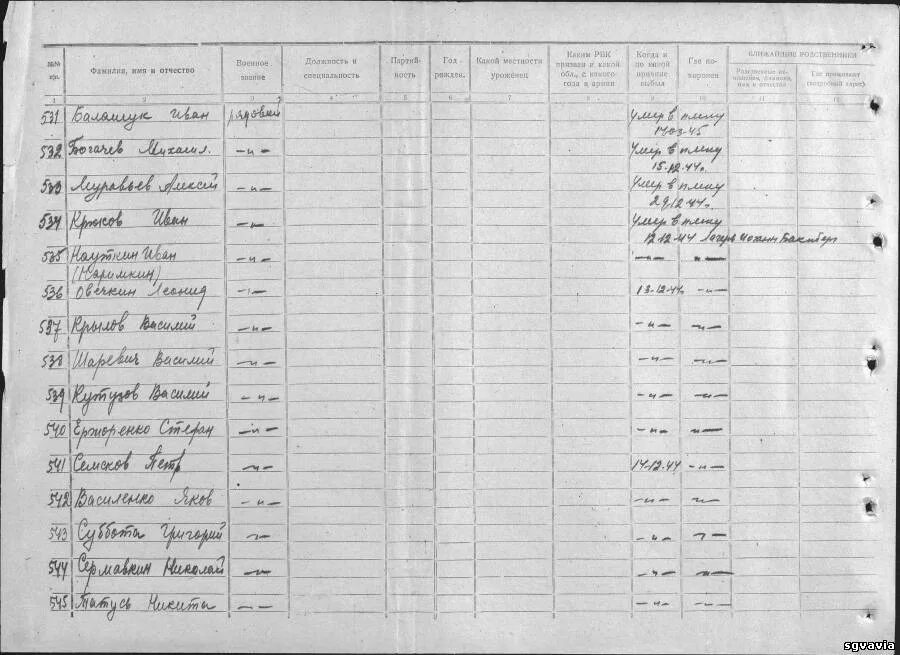 №№ пп. Фамилия, имя и отчество Военное звание Должность и специальность Партий-ность Год рожден. Какой местности уроженец Каким РВК призван и какой обл., с какого года в армии Когда и по какой причине выбыл Где похоронен БЛИЖАЙШИЕ РОДСТВЕННИКИ
Где проживает
1 2 3 4 5 6 7 8 9 10 11 12
531 Балашук Иван рядовый Умер в плену
17.03.45
532 Богачев Михаил. —"— Умер в плену
15.12.44г.
533 Муравьев Алексей —"— Умер в плену
29.12.44г.
534 Крюков Иван —"— Умер в плену
12.12.44 Лагерь
535 Иван —"— —"— —"—
536 Овечкин Леонид —"— 13.12.44 —"—
537 Крылов Василий —"— —"— —"—
538 Шаревич Василий —"— —"— —"—
539 Кутузов Василий —"— —"— —"—
540 Стефан —"— —"— —"—
541 Семсков Петр —"— 14.12.44 —"—
542 Василенко Яков —"— —"— —"—
543 Суббота Григорий —"— —"— —"—
544 Сермавкин Николай —"— —"— —"—
545 Татусь Никита —"— —"— —"—
sgvavia